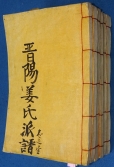 晋陽姜氏派譜